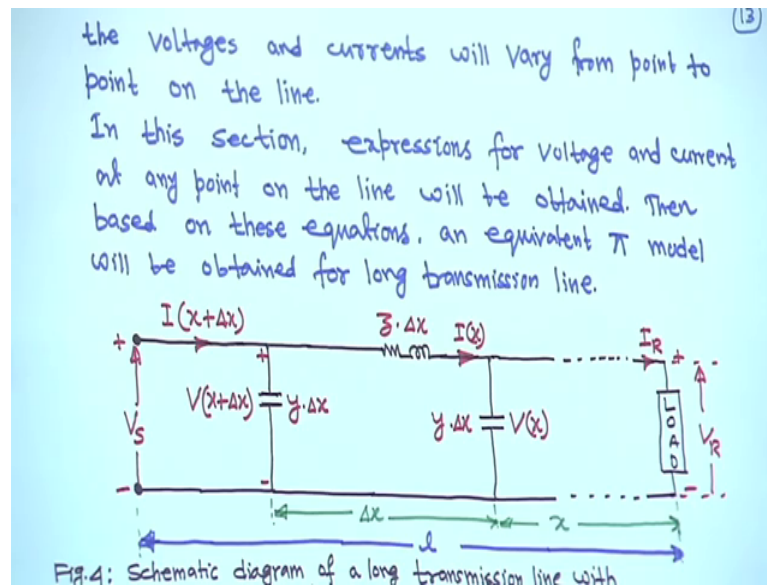 13
the voltages and currents will vary from point to
point on the line.
In this section, expressions for voltage and current
at any point on the line will be obtained. Then
based on these equations, an equivalent π model
will be obtained for long transmission line.
I(x+Δx) z·Δx I(x) I_R
+ + +
V_S V(x+Δx) y·Δx y·Δx V(x) LOAD V_R
- - -
Δx x
l
Fig.4: Schematic diagram of a long transmission line with